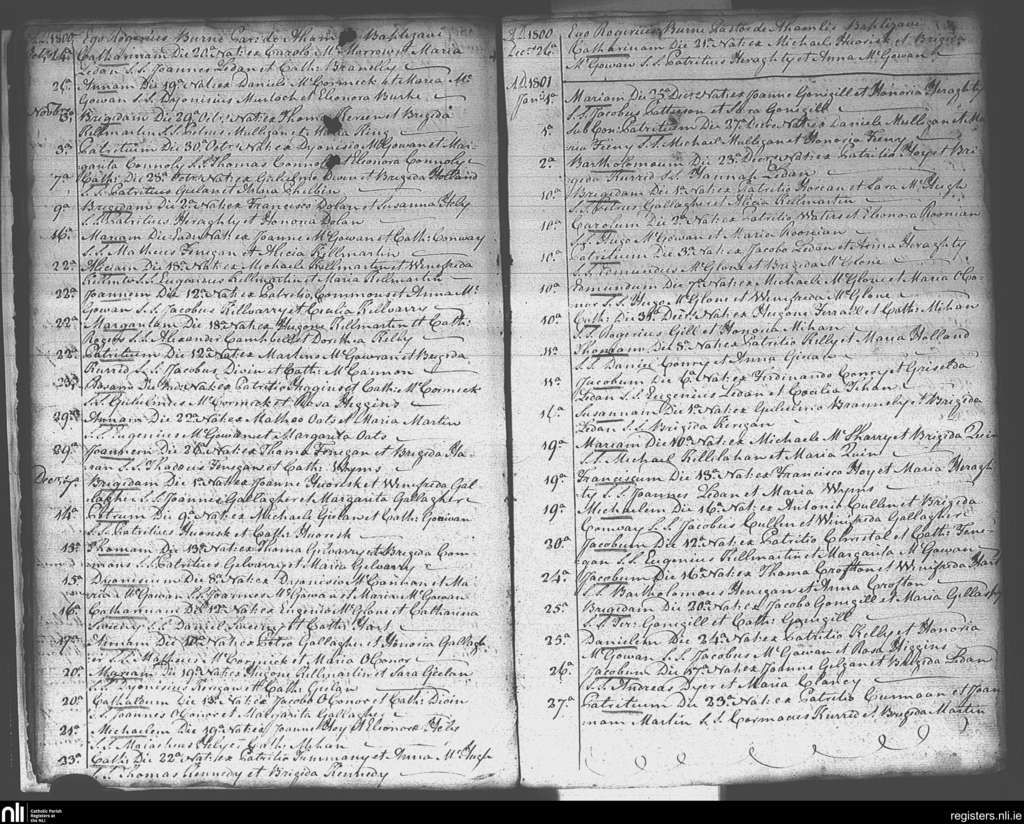 A.D. 1800 Ego Rogerius Burne Baptizavi
24ª Catharinam Die 20ª Nat. ex Carolo McMorrow et Maria
Ledan S.S. Joannes Ledan et Cath:
26ª Annam Die 19ª Nat. ex Daniele McCormick et Maria Mc
Gowan S.S. Dyonisius Murloch et Elionora Burke
Novbr 3ª Brigidam Die 29ª Octr Nat. ex Thoma et Brigida
Killmartin S.S. Petrus Mulligan et Maria King
3ª Patritium Die 30ª Octr Nat. ex Dyonisio McGowan et Mar-
garita Connoly S.S. Thomas et Eleonora Connoly
7ª Cath: Die 25ª Octr Nat. ex Gulielmo Divin et Brigida Holland
S.S. Patritius Gielan et Anna Philbin
9ª Brigidam Die 2ª Nat. ex Francisco Dolan et Susanna
S.S. Patritius Heraghty et Honora Dolan
16ª Mariam Die Nat. ex Joanne McGowan et Cath: Conway
S.S. Matheus Finegan et Alicia Killmartin
22ª Aliciam Die 18ª Nat. ex Michaele Killmartin et Winefrida
S.S. Eugenius Killmartin et Maria Killmartin
22ª Joannem Die 12ª Nat. ex Patritio Common et Anna Mc
Gowan S.S. Jacobus Killvarry et Cecilia Killvarry
22ª Margaritam Die 18ª Nat. ex Hugone Killmartin et Cath:
Rogers S.S. Alexander Cambell et Dorithea Kelly
22ª Patritium Die 12ª Nat. ex Martino McGowran et Brigida
Kurrid S.S. Jacobus Divin et Cath: McCannon
23ª Rosam Die Nat. ex Patritio Higgins et Cath: McCormick
S.S. Gulielmus McCormick et Rosa Higgins
29ª Annam Die 22ª Nat. ex Matheo Oats et Maria Martin
S.S. Eugenius McGowan et Margarita Oats
29ª Joannem Die 26ª Nat. ex Thoma Finegan et Brigida
S.S. Thadeus Finegan et Cath: Wyms
Decr 7ª Brigidam Die 1ª Nat. ex Joanne Huorisk et Winefrida Gal
lagher S.S. Joannes Gallagher et Margarita Gallagher
14ª Petrum Die 9ª Nat. ex Michaele Gielan et Cath:
S.S. Patritius Huorisk et Cath: Huorisk
15ª Thomam Die 13ª Nat. ex Thoma Gilvarry et Brigida Com
mons S.S. Patritius Gilvarry et Maria Gilvarry
15ª Dyonisium Die 8ª Nat. ex Dyonisio McCanihan et Ma
ria McGowan S.S. Joannes McGowan et Maria McGowan
16ª Catharinam Die 12ª Nat. ex Eugenio McGlone et Catharina
Sweeny S.S. Daniel Sweeny et Cath: Hart
17ª Annam Die Nat. ex Petro Gallagher et Honoria Gallagh
er S.S. Matheus McCormick et Maria OConor
20ª Mariam Die 19ª Nat. ex Hugone Killmartin et Sara Gielan
S.S. Dyonisius et Cath: Gielan
20ª Cathaldum Die 18ª Nat. ex Jacobo OConor et Cath: Divin
S.S. Joannes OConor et Margarita Gallagher
21ª Michaelem Die 19ª Nat. ex Joanne Hoy et Elionora
S.S. et Cath:
23ª Cath: Die 22ª Nat. ex Patritio Timmany et Anna McHugh
S.S. Thomas Kennedy et Brigida Kennedy
A.D. 1800 Ego Rogerius Burne Pastor de Ahamlis Baptizavi
Decr 26ª Catharinam Die 21ª Nat. ex Michaele Huorisk et Brigida
McGowan S.S. Patritius Heraghty et Anna McGowan
A.D. 1801
Janr 1ª Mariam Die 25ª Decr Nat. ex Joanne Gonigill et Honoria Heraghty
S.S. Jacobus Patterson et Sara Gonigill
1ª Sub Con: Patritium Die 27ª Decr Nat. ex Daniele Mulligan et Ma
ria Feeny S.S. Michael Mulligan et Honoria Feeny
2ª Bartholomeum Die 23ª Decr Nat. ex Patritio Hoy et Bri
gida Kurrid S.S. Hannah Ledan
10ª Brigidam Die 1ª Nat. ex Patritio et Sara McHugh
S.S. Petrus Gallagher et Alicia Killmartin
10ª Carolum Die 2ª Nat. ex Patritio Waters et Elionora Roonian
S.S. Hugo McGowan et Maria Roonian
10ª Patritium Die 3ª Nat. ex Jacobo Ledan et Anna Heraghty
S.S. Edmundus McGlone et Brigida McGlone
10ª Edmundum Die 7ª Nat. ex Michaele McGlone et Maria OCo-
nor S.S. Hugo McGlone et Winefrida McGlone
10ª Cath: Die 31ª Decr Nat. ex Hugone Ferrall et Cath: Mihan
S.S. Rogerius Gill et Honoria Mihan
11ª Thomam Die 8ª Nat. ex Patritio Kelly et Maria Holland
S.S. Daniel Conry et Anna
11ª Jacobum Die 6ª Nat. ex Ferdinando Conry et Griselda
Ledan S.S. Eugenius Ledan et Cecilia Tihan
14ª Susannam Die 1ª Nat. ex Gulielmo et Brigida
Ledan S.S. Brigida Kerigan
19ª Mariam Die 10ª Nat. ex Michaele McSharry et Brigida Quin
S.S. Michael Killilahan et Maria Quin
19ª Franciscum Die 18ª Nat. ex Francisco Hoy et Maria Heragh
ty S.S. Joannes Ledan et Maria Wyms
19ª Michaelem Die 16ª Nat. ex Antonio Cullen et Brigida
Conway S.S. Jacobus Cullen et Winefrida Gallagher
30ª Jacobum Die 12ª Nat. ex Patritio Christal et Cath: Fine
gan S.S. Eugenius Killmartin et Margarita McGowan
24ª Jacobum Die 16ª Nat. ex Thoma Crofton et Winefrida Hart
S.S. Bartholomeus Finegan et Anna Crofton
25ª Brigidam Die 20ª Nat. ex Jacobo Gonigill et Maria Gillasby
S.S. Gonigill et Cath: Gonigill
25ª Danielem Die 24ª Nat. ex Patritio Kelly et Honoria
McGowan S.S. Jacobus McGowan et Rosa Higgins
26ª Jacobum Die Nat. ex Joanne et Brigida Ledan
S.S. Andreas Dyer et Maria Clancy
27ª Patritium Die 23ª Nat. ex Patritio Curmaan et Joan
mam Martin S.S. Cormacus Kurrid et Brigida Martin
nli Catholic Parish
Registers at
the NLI
registers.nli.ie